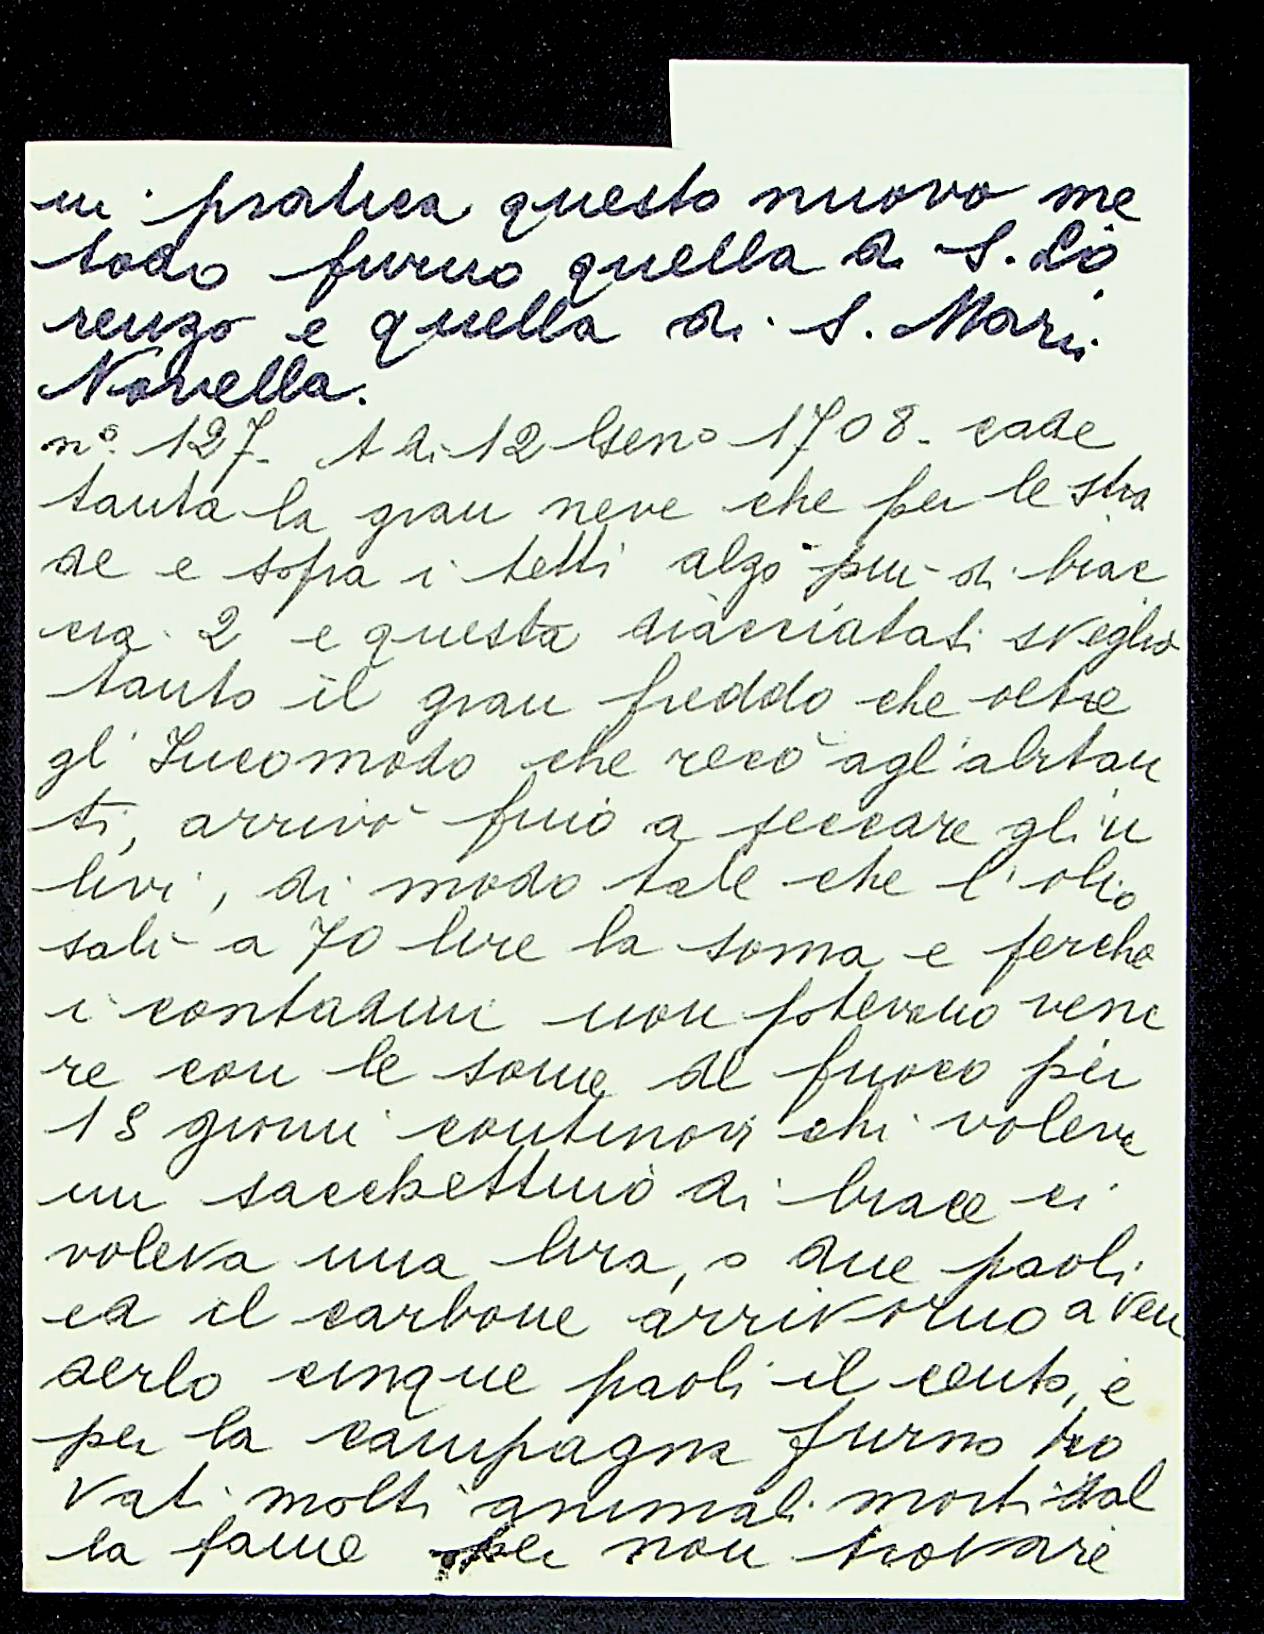 in pratica questo nuovo me
todo furno quella di S. Lo
renzo e quella di S. Mari
Novella.
n.° 127. A di 12 Gen° 1708. cade
tanta la gran neve che per le stra
de e sopra i tetti alzò più di brac
cia 2 e questa diacciatasi svegliò
tanto il gran freddo che oltre
gl' Incomodo che recò agl'abitan
ti, arrivò fino a seccare gli u
livi, di modo tale che l'olio
salì a 70 lire la soma e perche
i contadini non potevano veni
re con le some de fuoco per
18 giorni continovi chi voleva
un sacchettino di brace ci
voleva una lira, o due paoli
ed il carbone arrivorno a ven
derlo cinque paoli il cento, e
per la campagna furno tro
vati molti animali morti dal
la fame per non trovare